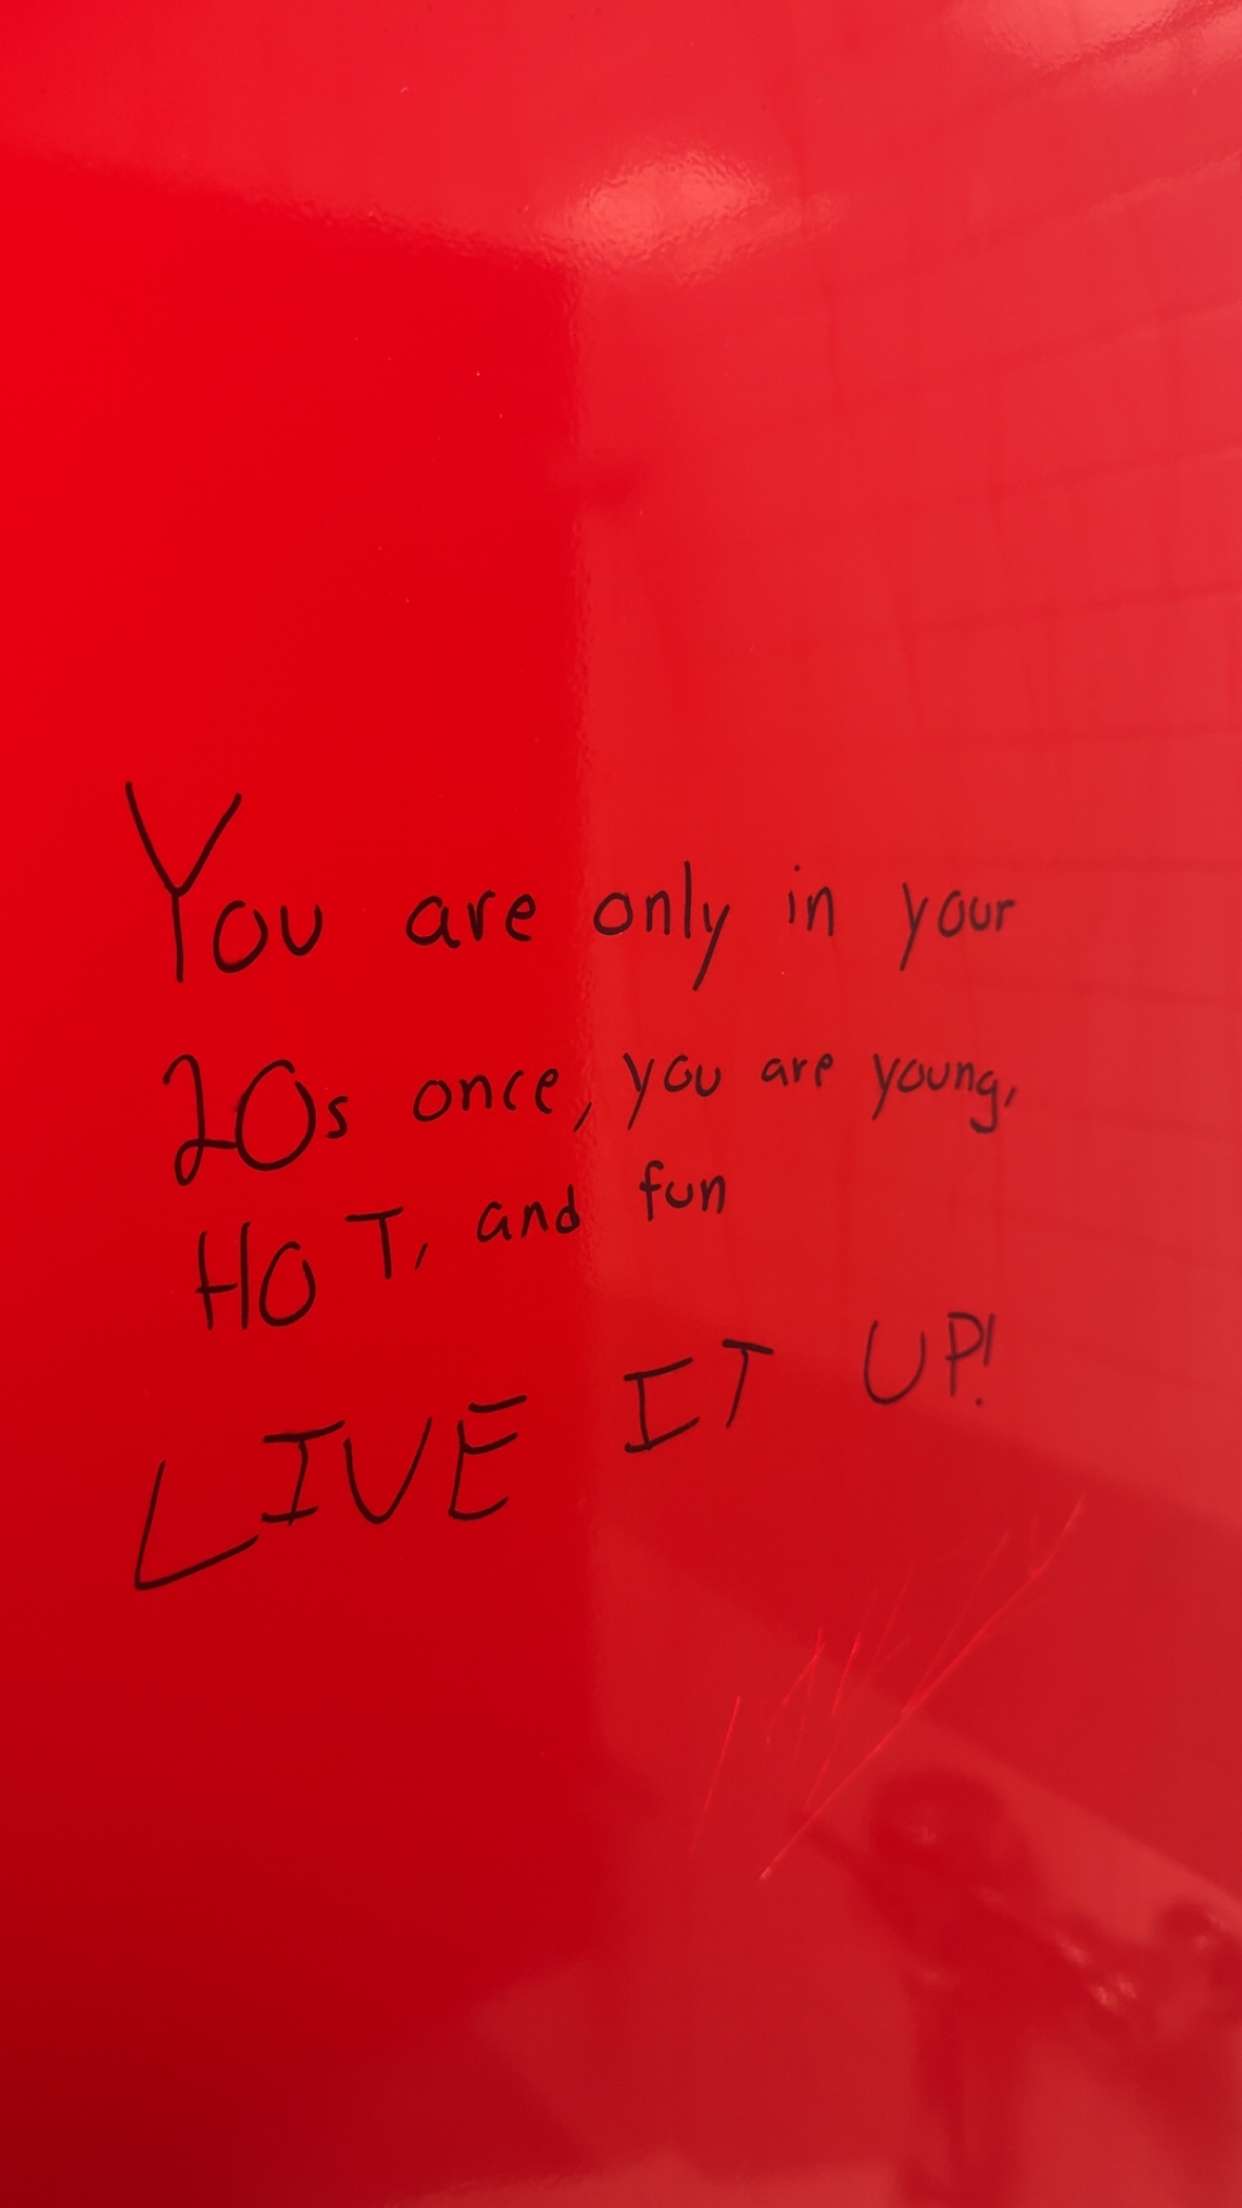 You are only in your
20s once, you are young,
HOT, and fun
LIVE IT UP!